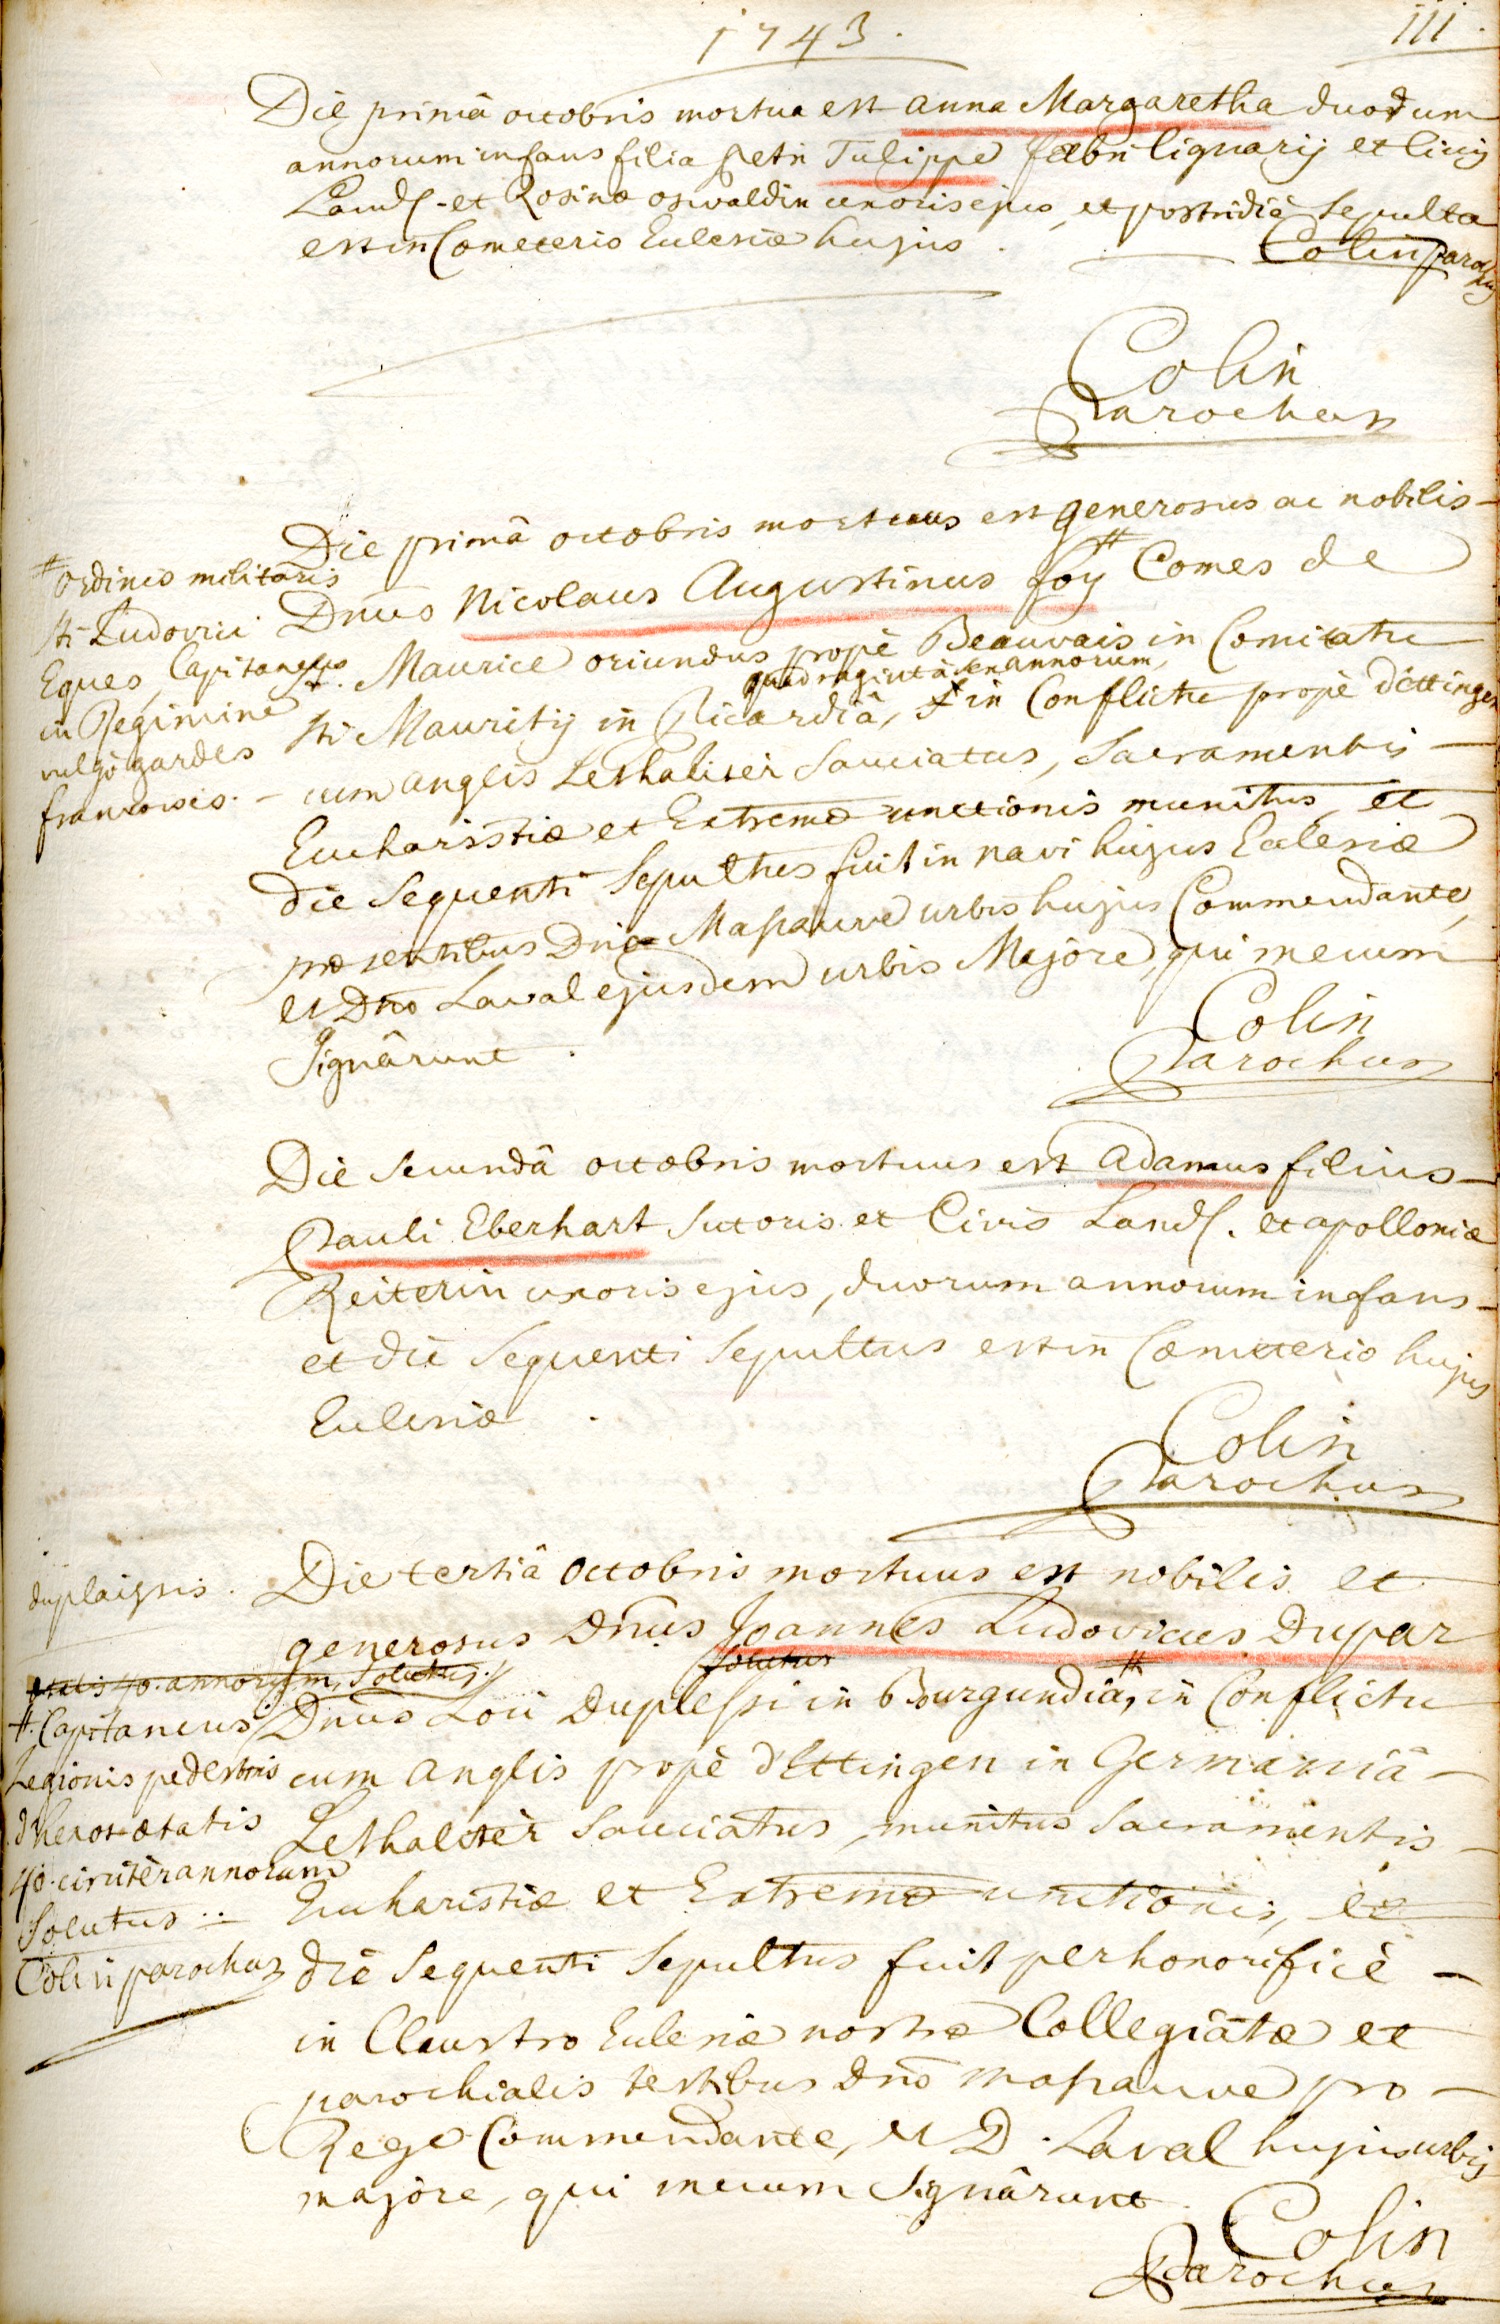 1743.
111.
Die primâ octobris mortua est anna Margaretha duorum
annorum infans filia petri Tulippe fabri lignarij et Civis
Land. et Rosinæ oswaldin uxoris ejus, et postridiè sepulta
est in Cometerio Ecclesiæ hujus.
Colin parochus
Colin
Parochus
Die primâ octobris mortuus est generosus ac nobilis
Dnus Nicolaus Augustinus foy # Comes de
St. Maurice oriundus propè Beauvais in Comitatu
quadraginta annorum,
sti Mauritij in Picardiâ, in Conflictu propè dettingen
cum anglis Lethalitèr Sauciatus, Sacramentis
Eucharistiæ et Extremæ unctionis munitus, et
die sequenti sepultus fuit in navi hujus Ecclesiæ
præsentibus Dno Massauve urbis hujus Commendante,
et Dno Laval ejusdem urbis Majore, qui mecum
signârunt.
# ordinis militaris
sti Ludovici
Eques, Capitaneus
in Regimine
vulgò gardes
francoises.
Colin
Parochus
Die secundâ octobris mortuus est adamus filius
Pauli Eberhart sutoris et Civis Land. et apolloniæ
Reiterin uxoris ejus, duorum annorum infans
et die sequenti sepultus est in Cæmeterio hujus
Ecclesiæ.
Colin
Parochus
duplaissis.
Die tertiâ octobris mortuus est nobilis et
generosus Dnus Joannes Ludovicus Dupar
solutus
Dnus Loü Duplessi in Burgundiâ, # in Conflictu
cum anglis propè dEttingen in Germaniâ
Lethalitèr sauciatus, munitus sacramentis
Eucharistiæ et Extremæ unctionis, et
die sequenti sepultus fuit perhonorificè
in Claustro Ecclesiæ nostræ Collegiatæ et
parochialis testibus Dno massauve pro
Rege Commendante, et D. Laval hujus urbis
majore, qui mecum signârunt.
ætatis 40. annorum, solutus.
#. Capitaneus
Legionis pedestris
ætatis
40. circitèr annorum
solutus
Colin parochus
Colin
Parochus